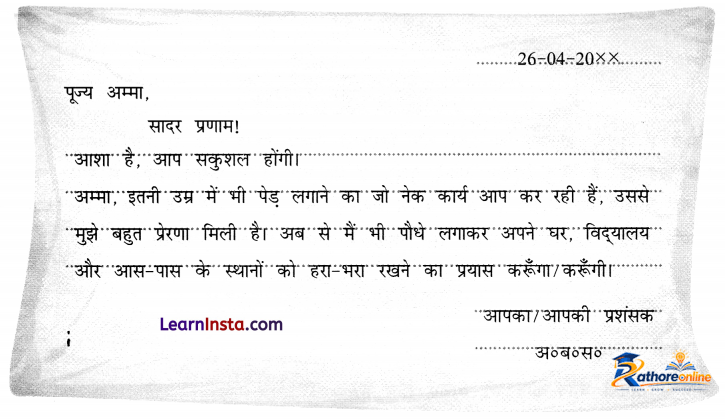 26-04-20××
पूज्य अम्मा,
सादर प्रणाम!
आशा है, आप सकुशल होंगी।
अम्मा, इतनी उम्र में भी पेड़ लगाने का जो नेक कार्य आप कर रही हैं, उससे
मुझे बहुत प्रेरणा मिली है। अब से मैं भी पौधे लगाकर अपने घर, विद्‌यालय
और आस-पास के स्थानों को हरा-भरा रखने का प्रयास करूँगा/करूँगी।
आपका/आपकी प्रशंसक
अ०ब०स०
LearnInsta.com
Rathoreonline
LEARN . GROW . SUCCEED